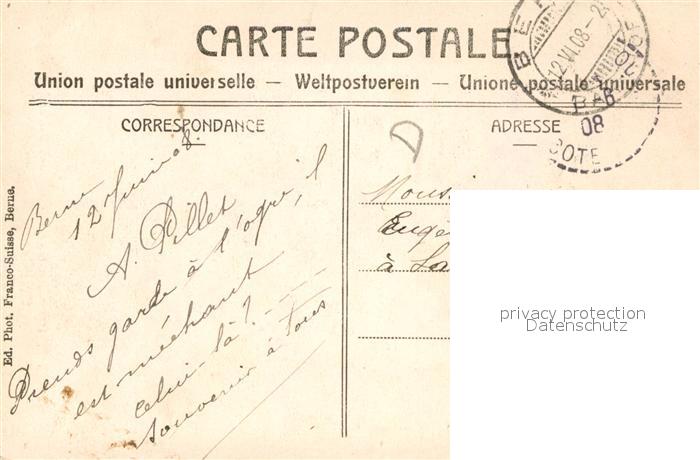 CARTE POSTALE
Union postale universelle — Weltpostverein — Unione postale universale
CORRESPONDANCE
ADRESSE
BER
12.VI.08-2
08
COTE
D
Berne
12 Juin 08.
A. Pillet
Prends garde à l'ogre, il
est méchant
celui-là?
Souvenir à tous
Mousi
Eugè
à
Ed. Phot. Franco-Suisse, Berne.
privacy protection
Datenschutz